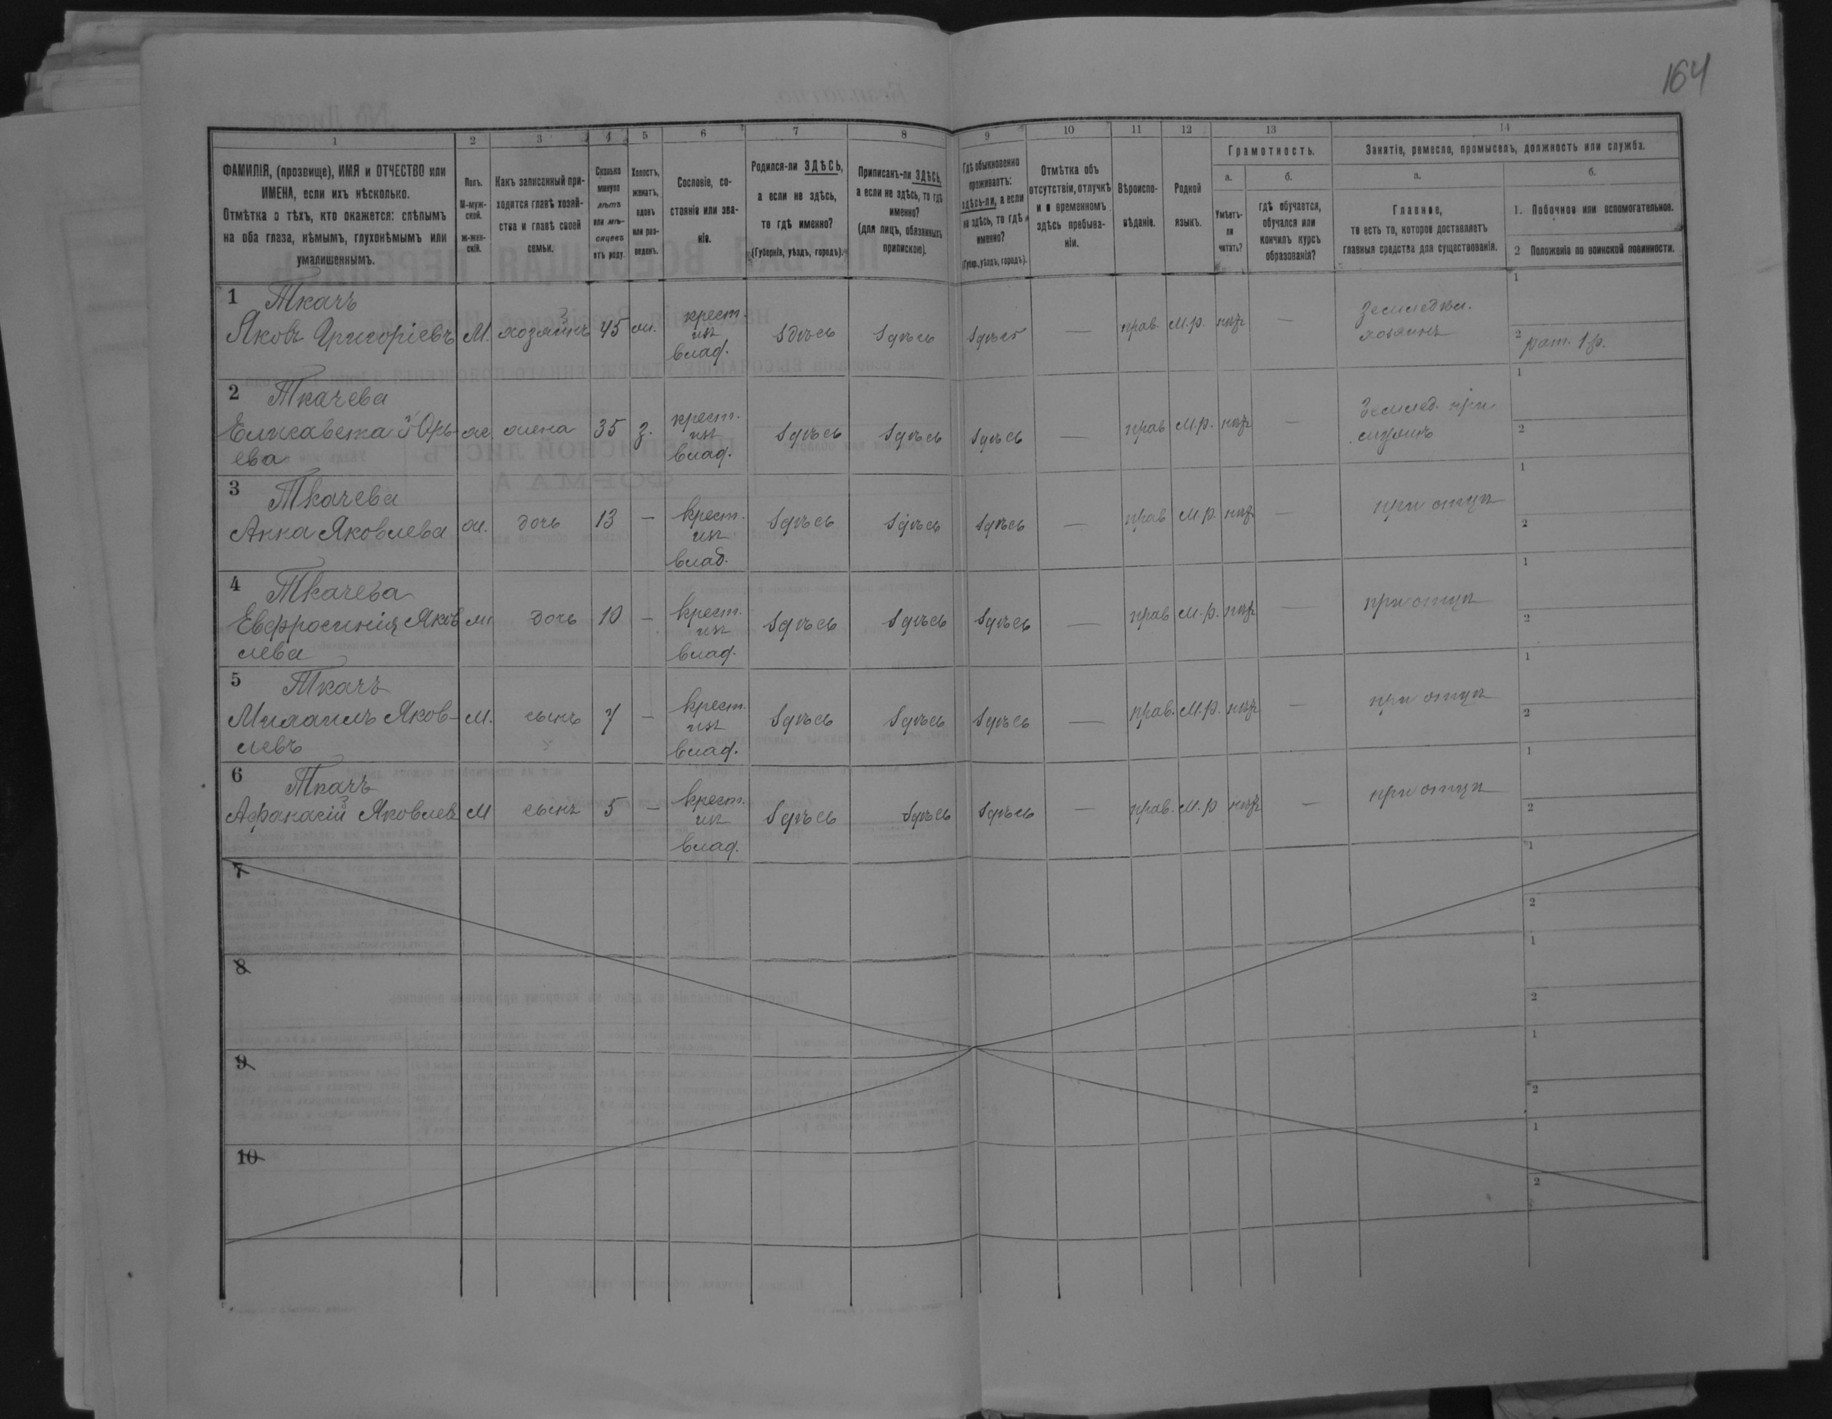 164
1
2
3
4
5
6
7
8
9
10
11
12
13
14
ФАМИЛІЯ, (прозвище), ИМЯ и ОТЧЕСТВО или
ИМЕНА, если ихъ нѣсколько.
Отмѣтка о тѣхъ, кто окажется: слѣпымъ
на оба глаза, нѣмымъ, глухонѣмымъ или
умалишеннымъ.
Полъ.
М-муж-
ской.
Ж-жен-
скій.
Какъ записанный при-
ходится главѣ хозяй-
ства и главѣ своей
семьи.
Сколько
минуло
лѣтъ
или мѣ-
сяцевъ
отъ роду.
Холостъ,
женатъ,
вдовъ
или раз-
веденъ.
Сословіе, со-
стояніе или зва-
ніе.
Родился-ли ЗДѢСЬ,
а если не здѣсь,
то гдѣ именно?
(Губернія, уѣздъ, городъ).
Приписанъ-ли ЗДѢСЬ,
а если не здѣсь, то гдѣ
именно?
(для лицъ, обязанныхъ
припискою).
Гдѣ обыкновенно
проживаетъ:
здѣсь-ли, а если
не здѣсь, то гдѣ
именно?
(Губер., уѣздъ, городъ).
Отмѣтка объ
отсутствіи, отлучкѣ
и о временномъ
здѣсь пребыва-
ніи.
Вѣроиспо-
вѣданіе.
Родной
языкъ.
Грамотность.
а.
Умѣетъ-
ли
читать?
б.
гдѣ обучается,
обучался или
кончилъ курсъ
образованія?
Занятіе, ремесло, промыселъ, должность или служба.
а.
Главное,
то есть то, которое доставляетъ
главныя средства для существованія.
б.
1. Побочное или вспомогательное.
2 Положеніе по воинской повинности.
1 Ткачъ
Яковъ Григоріевъ М. хозяинъ 45 ж. крест. изъ влад. здѣсь здѣсь здѣсь — прав. М.р. нѣтъ — Земледѣл. хозяинъ
1
2 рат. 1 р.
2 Ткачева
Елисавета
ева ж. жена 35 з. крест. изъ влад. здѣсь здѣсь здѣсь — прав М.р. нѣтъ — Землед. при мужѣ
1
2
3 Ткачева
Анна Яковлева ж. дочь 13 — крест. изъ влад. здѣсь здѣсь здѣсь — прав М.р. нѣтъ — при отцѣ
1
2
4 Ткачева
Евфросинія Яков
лева ж дочь 10 — крест. изъ влад. здѣсь здѣсь здѣсь — прав М.р. нѣтъ — при отцѣ
1
2
5 Ткачъ
Михаилъ Яков-
левъ М. сынъ 7 — крест. изъ влад. здѣсь здѣсь здѣсь — прав. М.р. нѣтъ — при отцѣ
1
2
6 Ткачъ
Афанасій Яковлев М сынъ 5 — крест. изъ влад. здѣсь здѣсь здѣсь — прав. М.р нѣтъ — при отцѣ
1
2
7
1
2
8
1
2
9
1
2
10
1
2